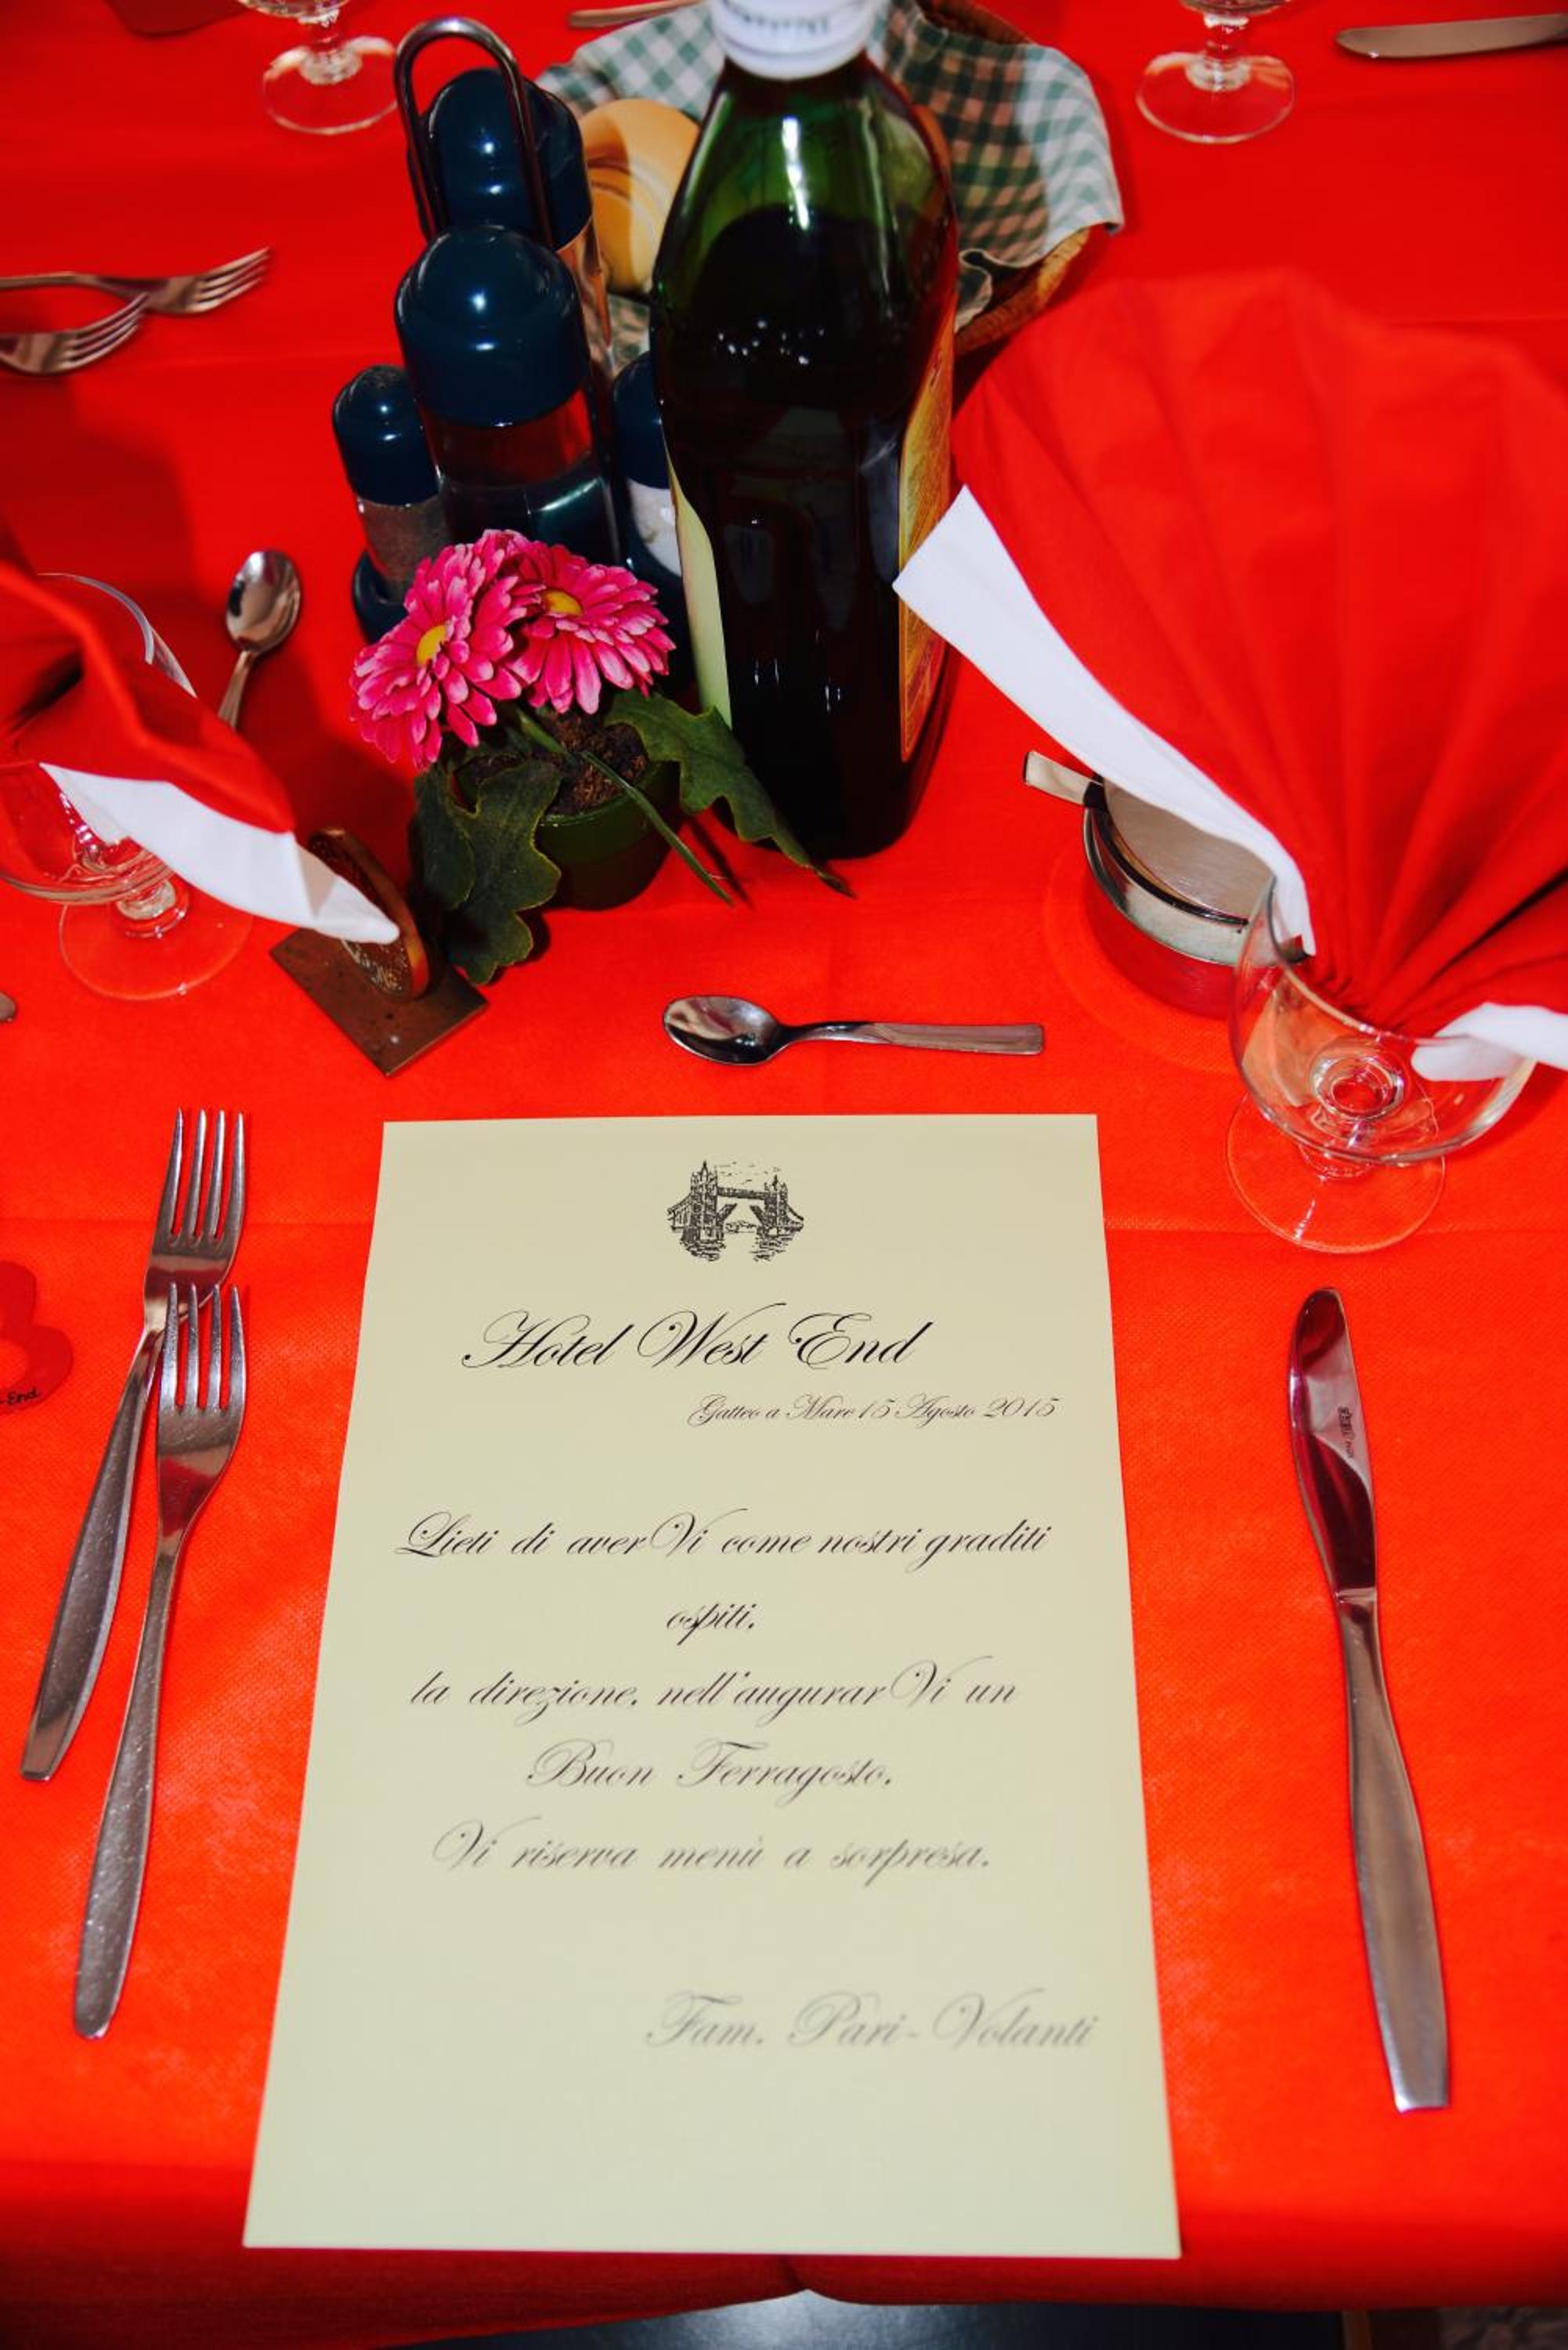 Hotel West End
Gatteo a Mare 15 Agosto 2015
Lieti di averVi come nostri graditi
ospiti,
la direzione, nell'augurarVi un
Buon Ferragosto,
Vi riserva menù a sorpresa.
Fam. Pari-Volanti
-End